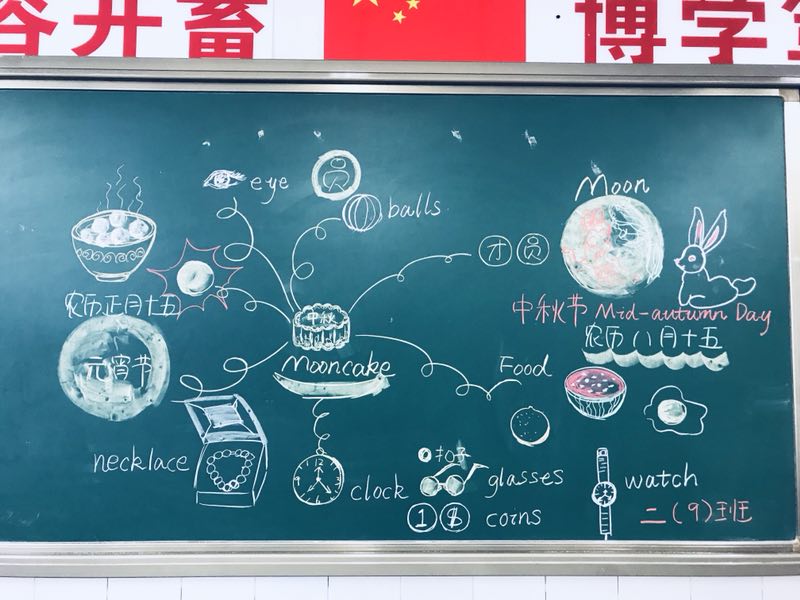 容并蓄
博学
eye
员
balls
才 员
Moon
农历正月十五
元宵节
中秋
Mooncake
中秋节 Mid-autumn Day
农历八月十五
Food
necklace
clock
扣子
glasses
1 $ coins
watch
二(9)班